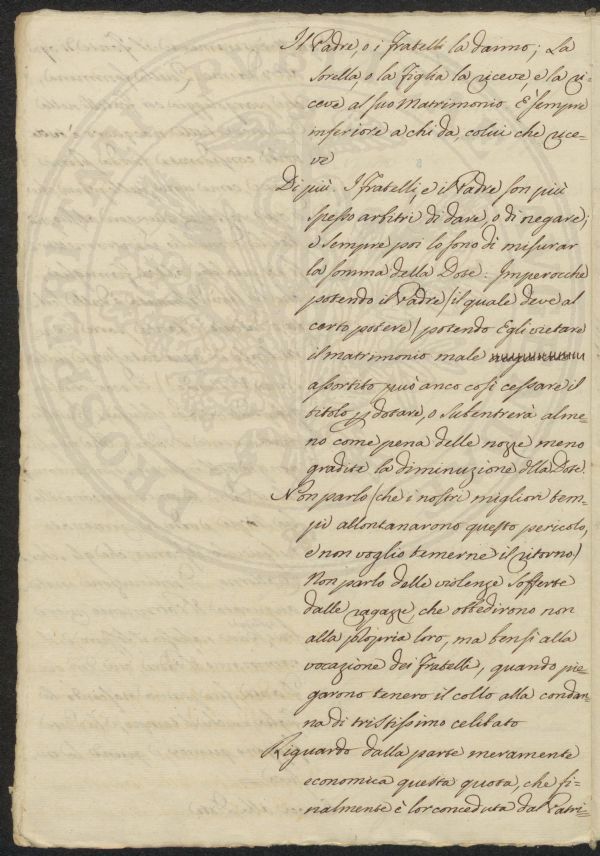 Il Padre, o i Fratelli la danno; La
Sorella, o la Figlia la riceve, e la ri-
ceve al suo Matrimonio. E' sempre
inferiore a chi da, colui che rice-
ve
Di più. I fratelli, e il Padre son più
spesso arbitri di dare, o di negare;
e sempre poi lo sono di misurar
la somma della Dote: Imperocche
potendo il Padre / il quale deve al
certo potere / potendo Egli vietare
il matrimonio male
assortito può anco così cessare il
titolo p dotare, o subentrerà alme-
no come pena delle nozze meno
gradite la diminuzione dlla Dote.
Non parlo / che i nostri migliori tem-
pi allontanarono questo pericolo,
e non voglio temerne il ritorno /
Non parlo delle violenze sofferte
dalle ragazze, che obbedirono non
alla propria loro, ma bensì alla
vocazione dei Fratelli, quando pie-
garono tenero il collo alla condan-
na di tristissimo celibato
Riguardo dalla parte meramente
economica questa quota, che fi-
nalmente è lor conceduta dal Patri-